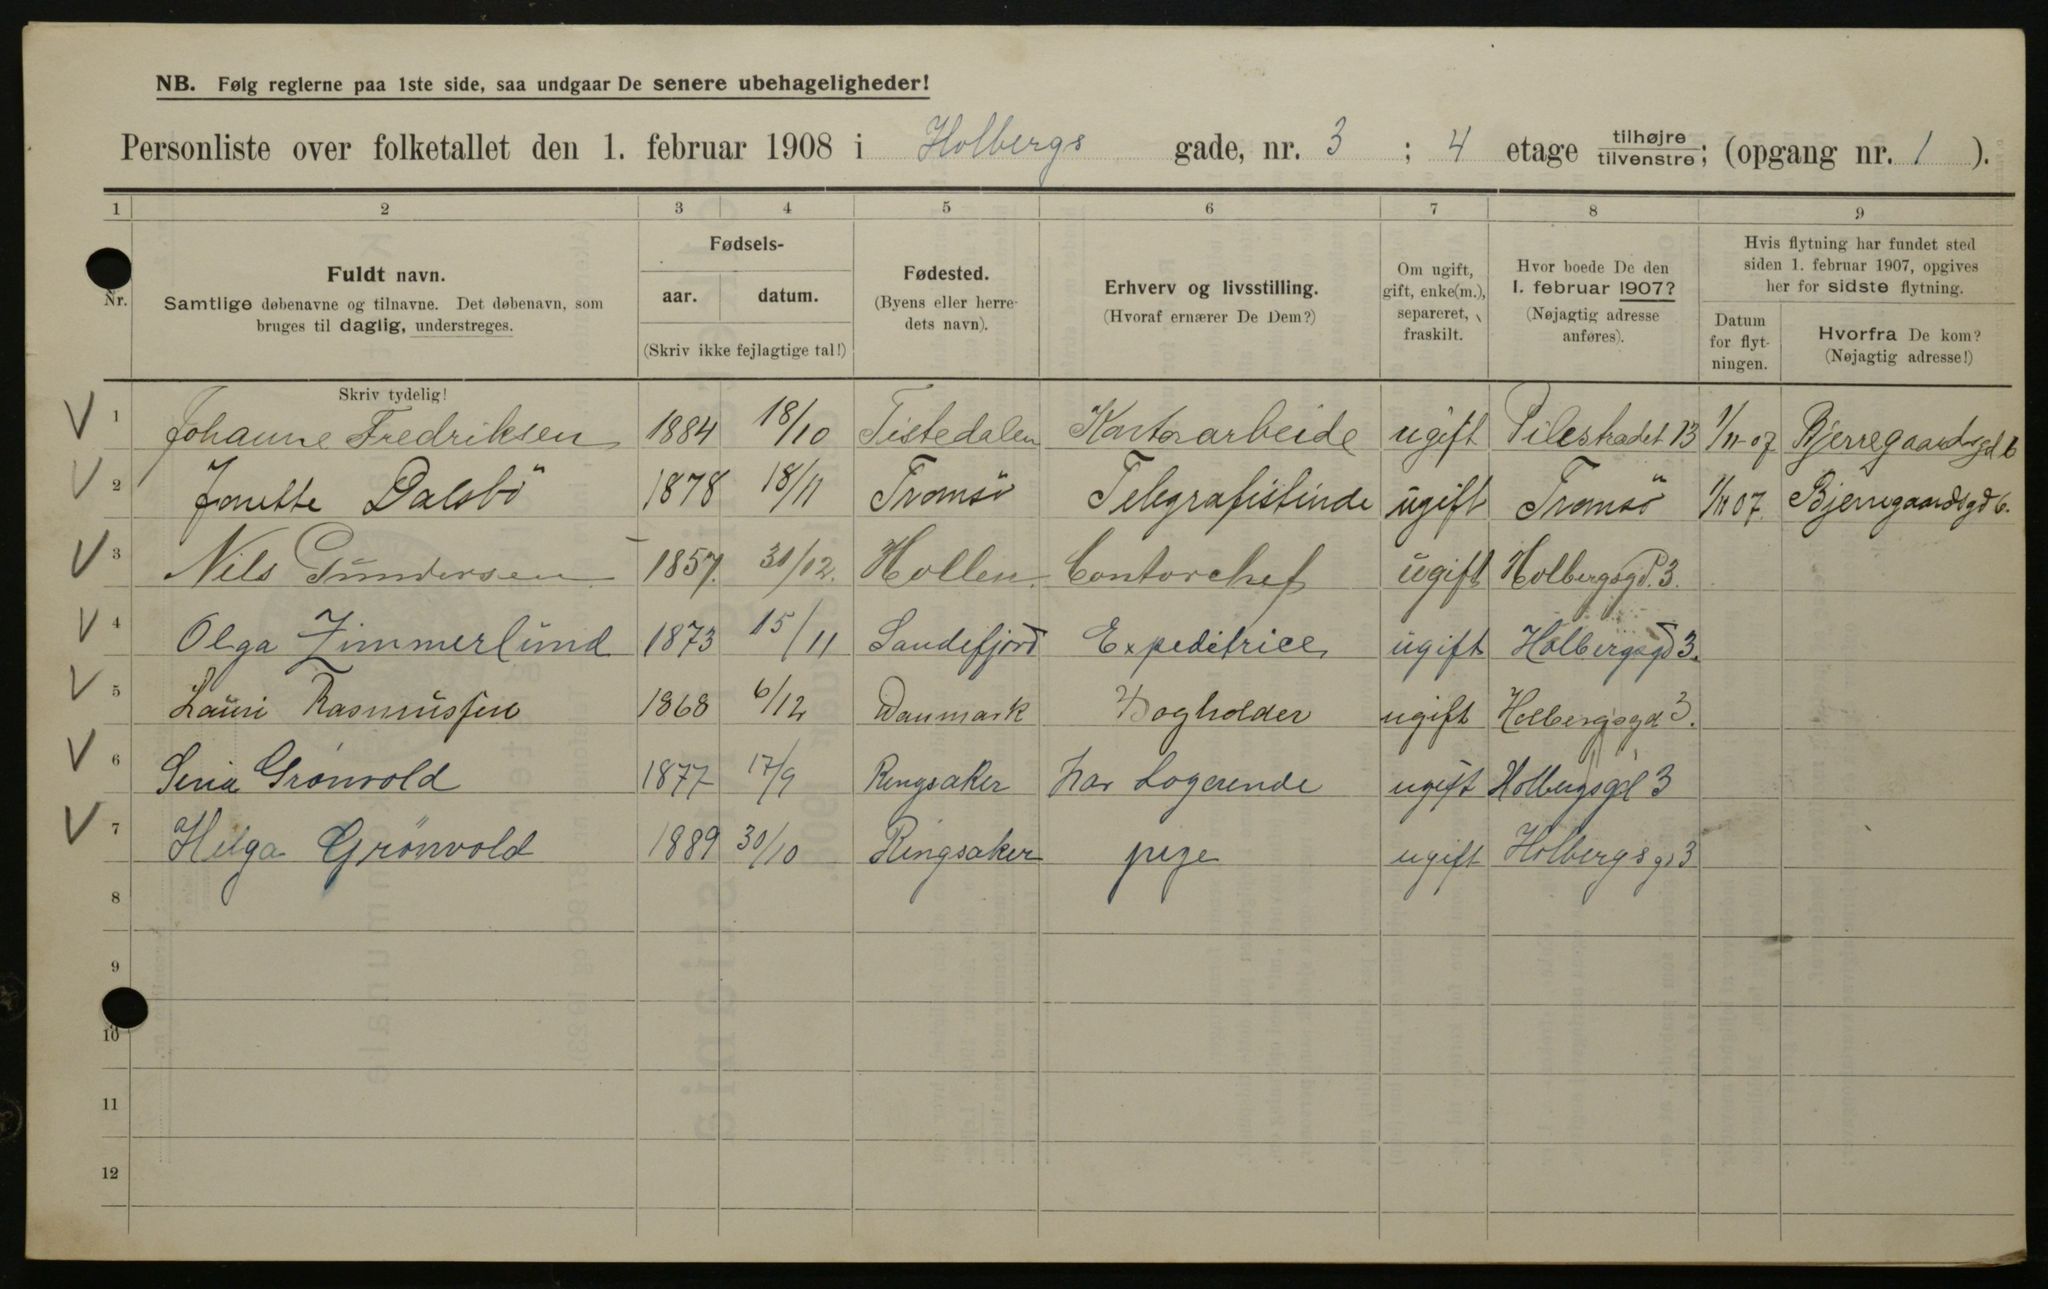 NB. Følg reglerne paa 1ste side, saa undgaar De senere ubehageligheder!
Personliste over folketallet den 1. februar 1908 i Holbergs gade, nr. 3 ; 4 etage tilhøjre tilvenstre; (opgang nr. 1 ).
1 2 3 4 5 6 7 8 9
Nr.
Fuldt navn.
Samtlige døbenavne og tilnavne. Det døbenavn, som
bruges til daglig, understreges.
Fødsels-
aar. datum.
(Skriv ikke fejlagtige tal!)
Fødested.
(Byens eller herre-
dets navn).
Erhverv og livsstilling.
(Hvoraf ernærer De Dem?)
Om ugift,
gift, enke(m.),
separeret,
fraskilt.
Hvor boede De den
1. februar 1907?
(Nøjagtig adresse
anføres).
Hvis flytning har fundet sted
siden 1. februar 1907, opgives
her for sidste flytning.
Datum
for flyt-
ningen.
Hvorfra De kom?
(Nøjagtig adresse!)
Skriv tydelig!
1 Johanne Fredriksen 1884 18/10 Tistedalen Kontorarbeide ugift Pilestradet 13 1/11-07 Bjerregaardsgd 6
2 Jonette Dalsbö 1878 18/11 Tromsö Telegrafistinde ugift Tromsö 1/11 07. Bjerregaardsgd 6.
3 Nils Gundersen 1857. 30/12. Hollen. Contorchef ugift Holbergsgd. 3.
4 Olga Zimmerlund 1873 15/11 Sandefjord Expeditrice ugift Holbergsgd 3.
5 Lauri Rasmussen 1868 6/12 Danmark Bogholder ugift Holbergsgd 3.
6 Seria Grönvold 1877 17/9 Ringsaker har Logerende ugift Holbergsgd 3
7 Helga Grönvold 1889 30/10 Ringsaker pige ugift Holbergs gd 3
8
9
10
11
12